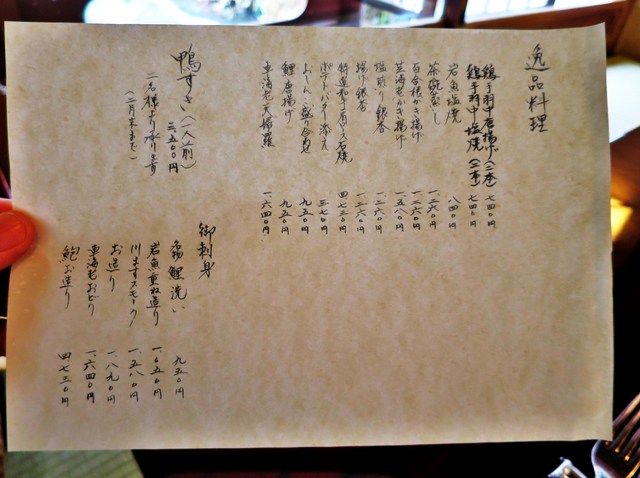 逸品料理
鶏手羽中唐揚げ(二本) 七四〇円
鶏手羽中塩焼(二本) 七四〇円
岩魚塩焼 八四〇円
茶碗蒸し 一、二六〇円
百合根かき揚げ 一、二六〇円
芝海老かき揚げ 一、五八〇円
塩煎り銀杏 一、二六〇円
揚げ銀杏 一、二六〇円
特選和牛ロース石焼 四、七三〇円
ポテトバター添え 三七〇円
おしんこ盛り合わせ 九五〇円
鯉唐揚げ 九五〇円
車海老天婦羅 一、六四〇円
鴨すき(一人前) 三、五〇〇円
二名様より承ります
(二月末まで)
御刺身
鯉洗い 九五〇円
岩魚重ね造り 一、〇五〇円
川ますスモーク 一、五八〇円
お造り 一、八九〇円
車海老おどり 一、六四〇円
鮑お造り 四、七三〇円